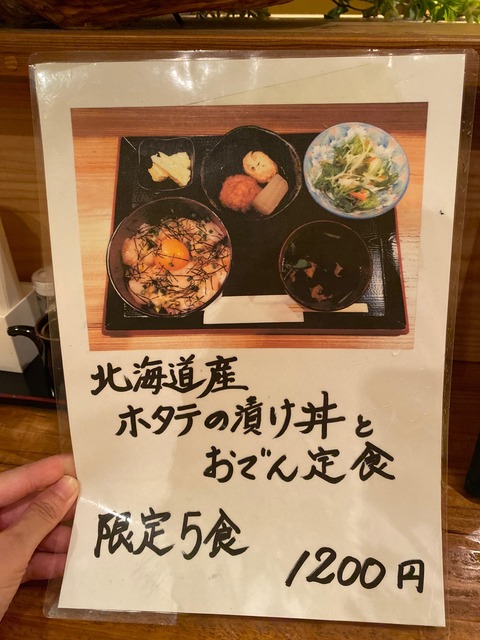 北海道産
ホタテの漬け丼と
おでん定食
限定5食
1200円